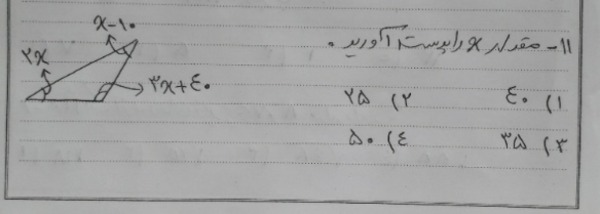 ۱۱- مقدار x را بدست آورید.
x-۱۰
۲x
۳x+٤۰
۱) ٤۰ ۲) ۲۵
۳) ۳۵ ٤) ۵۰